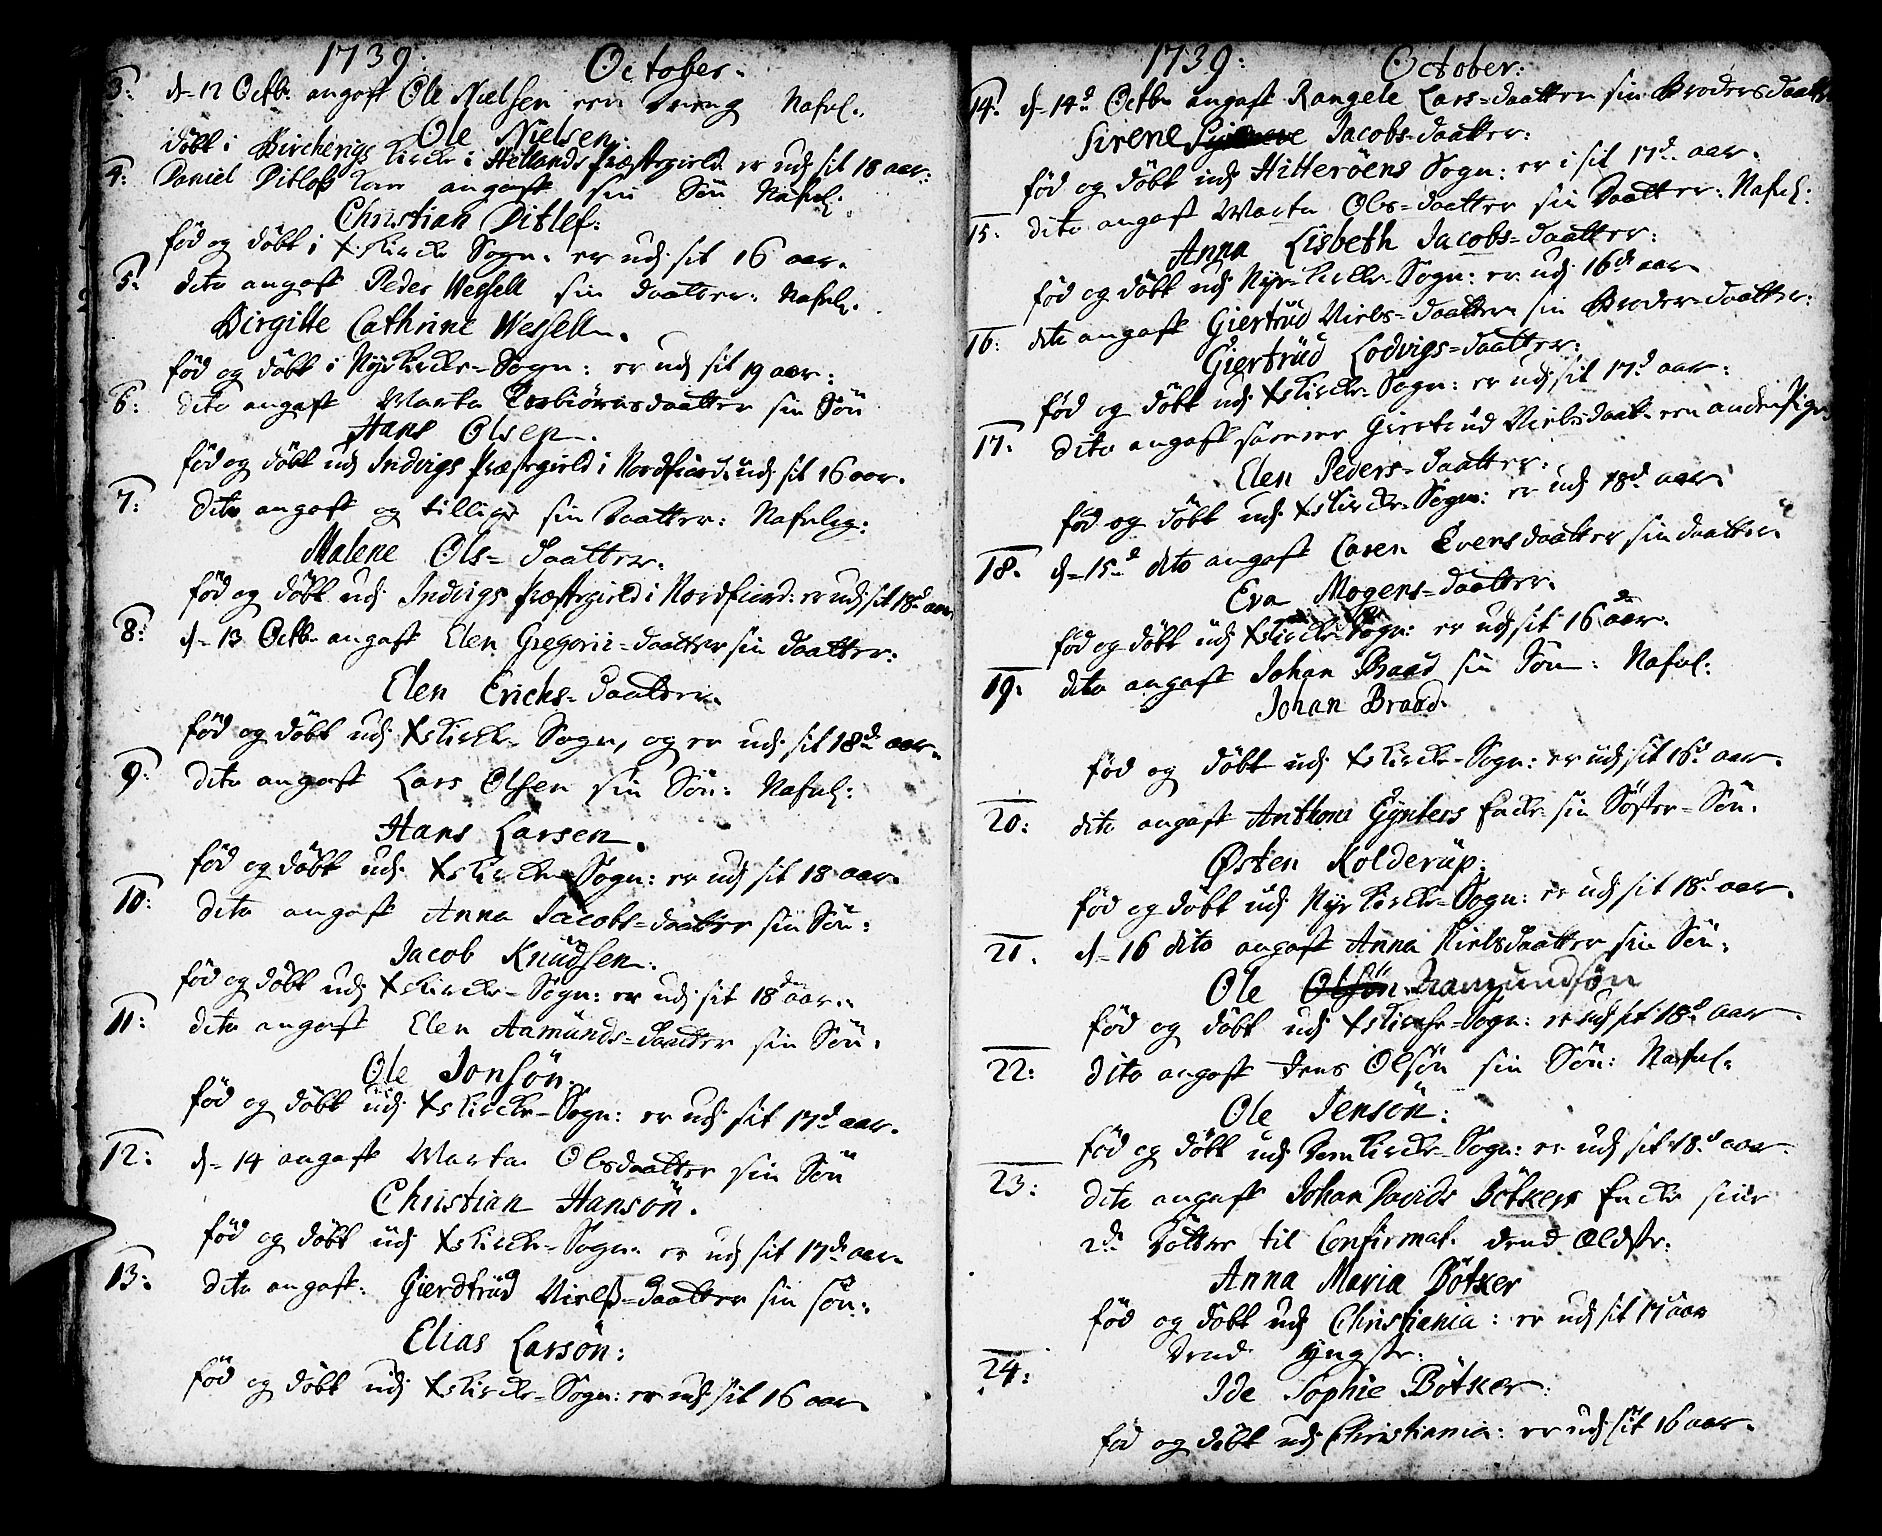 1739. October.
3. d. 12 Octb. angaf Ole Nielsen een Dreng Nafnl.
Ole Nielsen:
döbt i Bircherigs Kircke i Hetlands Præstegield er udj sit 18 aar:
4. Daniel Ditlofs Kone angaf sin Sön Nafnl:
Christian Ditlef:
föd og döbt i Xkircke Sogn. er udj sit 16 aar.
5. dito angaf Peder Wessell sin daatter. Nafnl.
Birgitte Cathrine Wessell.
föd og döbt i Nykircke-Sogn: er udj sit 19 aar:
6: dito angaf Marta Torbiörnsdaatter sin Sön
Hans Olsen.
föd og döbt udj Indvigs Præstegield i Nordfiord. udj sit 16 aar.
7: dito angaf og tillige sin Daatter: Nafnlig:
Malene Ols-daatter.
föd og döbt udj Indvigs Præstegield i Nordfiord: er udj sit 18d aar
8: d. 13 Octb. angaf Elen Gregorii-daatter sin daatter:
Elen Erichs-daatter.
föd og döbt udj Xkircke-Sogn, og er udj sit 18de aar.
9: dito angaf Lars Olsen sin Sön: Nafnl:
Hans Larsen.
föd og döbt udj Xkircke-Sogn: er udj sit 18 aar.
10: dito angaf Anna Jacobs-daatter sin Sön:
Jacob Knudsen.
föd og döbt udj Xkircke-Sogn: er udj sit 18d aar.
11: dito angaf Elen Aamunds-daatter sin Sön.
Ole Jonsön.
föd og döbt udj Xkircke-Sogn: er udj sit 17d aar.
12: d. 14 angaf Marta Olsdaatter sin Sön
Christian Hansön.
föd og döbt udj Xkircke-Sogn. er udj sit 17de aar.
13: dito angaf. Gierdtrud Nielss-daatter sin sön:
Elias Larsön:
föd og döbt udj Xkircke-Sogn: er udj sit 16 aar.
1739: October:
14. d. 14d Octb. angaf Rangele Lars-daatter sin Brodersdaatter
Sirene Jacobs-daatter:
föd og döbt udj Hitteröens Sogn: er i sit 17d aar.
15: dito angaf Marta Ols-daatter sin Daatter: Nafnl:
Anna Lisbeth Jacobs-daatter:
föd og döbt udj Nye-Kircke-Sogn: er udj 16de aar
16: dito angaf Giertrud Niels-daatter sin Broder-daatter:
Giertrud Lodvigs-daatter:
föd og döbt udj Xkircke-Sogn: er udj sit 17d aar:
17: dito angaf samme Giertrud Nielsdaat. een anden Pige
Elen Peders-daatter:
föd og döbt udj Xkircke-Sogn: er udj 18d aar.
18. d. 15d dito angaf Caren Eversdaatter sin daatter
Eva Mogens-daatter.
föd og döbt udj Xkircke-Sogn: er udj sit 16de aar.
19: dito angaf Johan Braad sin Sön: Nafnl:
Johan Braad.
föd og döbt udj Xkircke-Sogn: er udj sit 16d aar.
20: dito angaf Anthoni Gynters Encke sin Söster-Sön.
Østen Kolderup.
föd og döbt udj Nye Kircke-Sogn: er udj sit 18d aar.
21. d. 16 dito angaf Anna Nielsdaatter sin Sön:
Ole Olsön Aamundsön
föd og döbt udj Xkircke-Sogn: er udj sit 18d aar.
22: dito angaf Jens Olsön sin Sön: Nafnl.
Ole Jensön:
föd og döbt udj Domkircke-Sogn: er udj sit 18d aar.
23: dito angaf Johan Davids Bötkers Encke sine
2de Dötter til Confirmat. dend Ældste.
Anna Maria Bötker
föd og döbt udj Christiania: er udj sit 17 aar
Dend yngste:
24: Ide Sophie Bötker:
föd og döbt udj Christiania: er udj sit 16 aar.